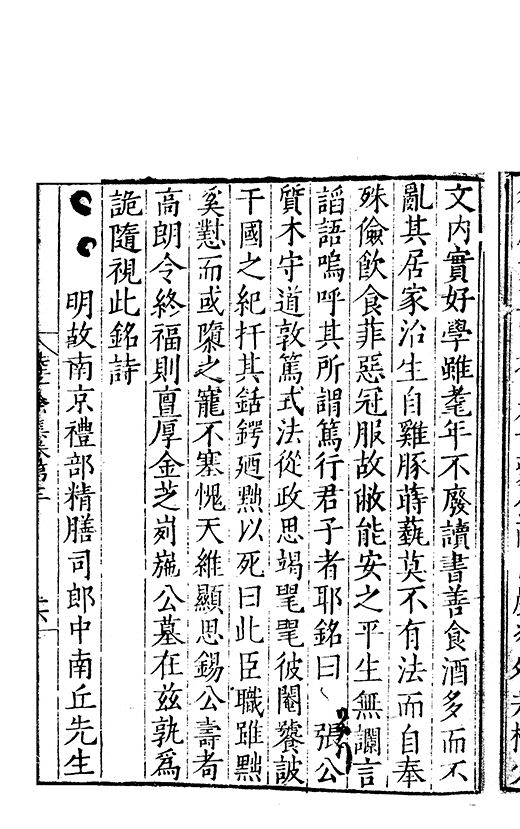 文內實好學雖耄年不廢讀書善食酒多而不
亂其居家治生自雞豚蒔蓺莫不有法而自奉
殊儉飲食菲惡冠服故敝能安之平生無讕言
謟語嗚呼其所謂篤行君子者耶銘曰 張公
質木守道敦篤式法從政思竭毣毣彼閹饕詖
干國之紀扞其銛鍔廼黜以死曰此臣職雖黜
奚懟而或隳之寵不塞愧天維顯思錫公壽耇
高朗令終福則亶厚金芝𠛴𦭘公墓在兹孰為
詭隨視此銘詩
明故南京禮部精膳司郎中南丘先生